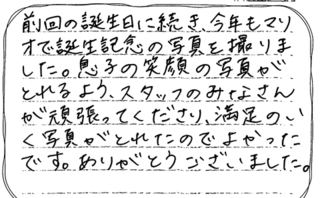 前回の誕生日に続き、今年もマリ
オで誕生記念の写真を撮りま
した。息子の笑顔の写真が
とれるよう、スタッフのみなさん
が頑張ってくださり、満足のい
く写真がとれたのでよかった
です。ありがとうございました。